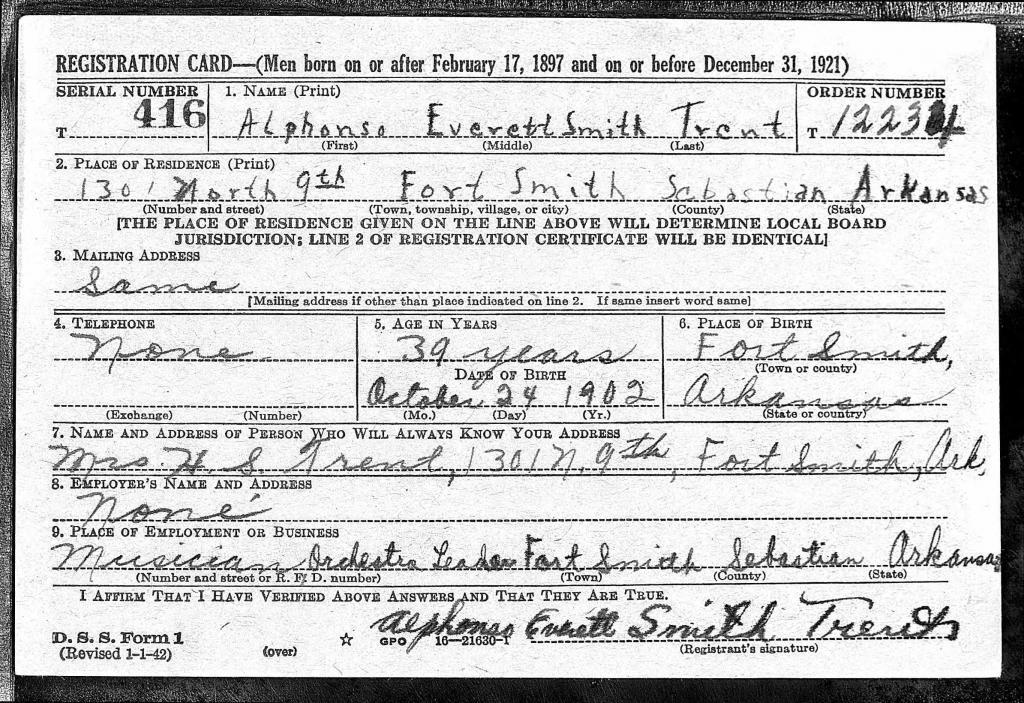 REGISTRATION CARD—(Men born on or after February 17, 1897 and on or before December 31, 1921)
SERIAL NUMBER 1. NAME (Print) ORDER NUMBER
T 416 Alphonso Everett Smith Trent T 12234
(First) (Middle) (Last)
2. PLACE OF RESIDENCE (Print)
1301 North 9th Fort Smith Sebastian Arkansas
(Number and street) (Town, township, village, or city) (County) (State)
[THE PLACE OF RESIDENCE GIVEN ON THE LINE ABOVE WILL DETERMINE LOCAL BOARD
JURISDICTION; LINE 2 OF REGISTRATION CERTIFICATE WILL BE IDENTICAL]
3. MAILING ADDRESS
Same
[Mailing address if other than place indicated on line 2. If same insert word same]
4. TELEPHONE 5. AGE IN YEARS 6. PLACE OF BIRTH
None 39 years Fort Smith,
DATE OF BIRTH (Town or county)
October 24 1902 Arkansas
(Exchange) (Number) (Mo.) (Day) (Yr.) (State or country)
7. NAME AND ADDRESS OF PERSON WHO WILL ALWAYS KNOW YOUR ADDRESS
Mrs. H. S Trent, 1301 N. 9th, Fort Smith, Ark,
8. EMPLOYER'S NAME AND ADDRESS
None
9. PLACE OF EMPLOYMENT OR BUSINESS
Musician Orchestra Leader Fort Smith Sebastian Arkansas
(Number and street or R. F. D. number) (Town) (County) (State)
I AFFIRM THAT I HAVE VERIFIED ABOVE ANSWERS AND THAT THEY ARE TRUE.
Alphonso Everett Smith Trent
D. S. S. Form 1 GPO 16—21630-1 (Registrant's signature)
(Revised 1-1-42) (over)